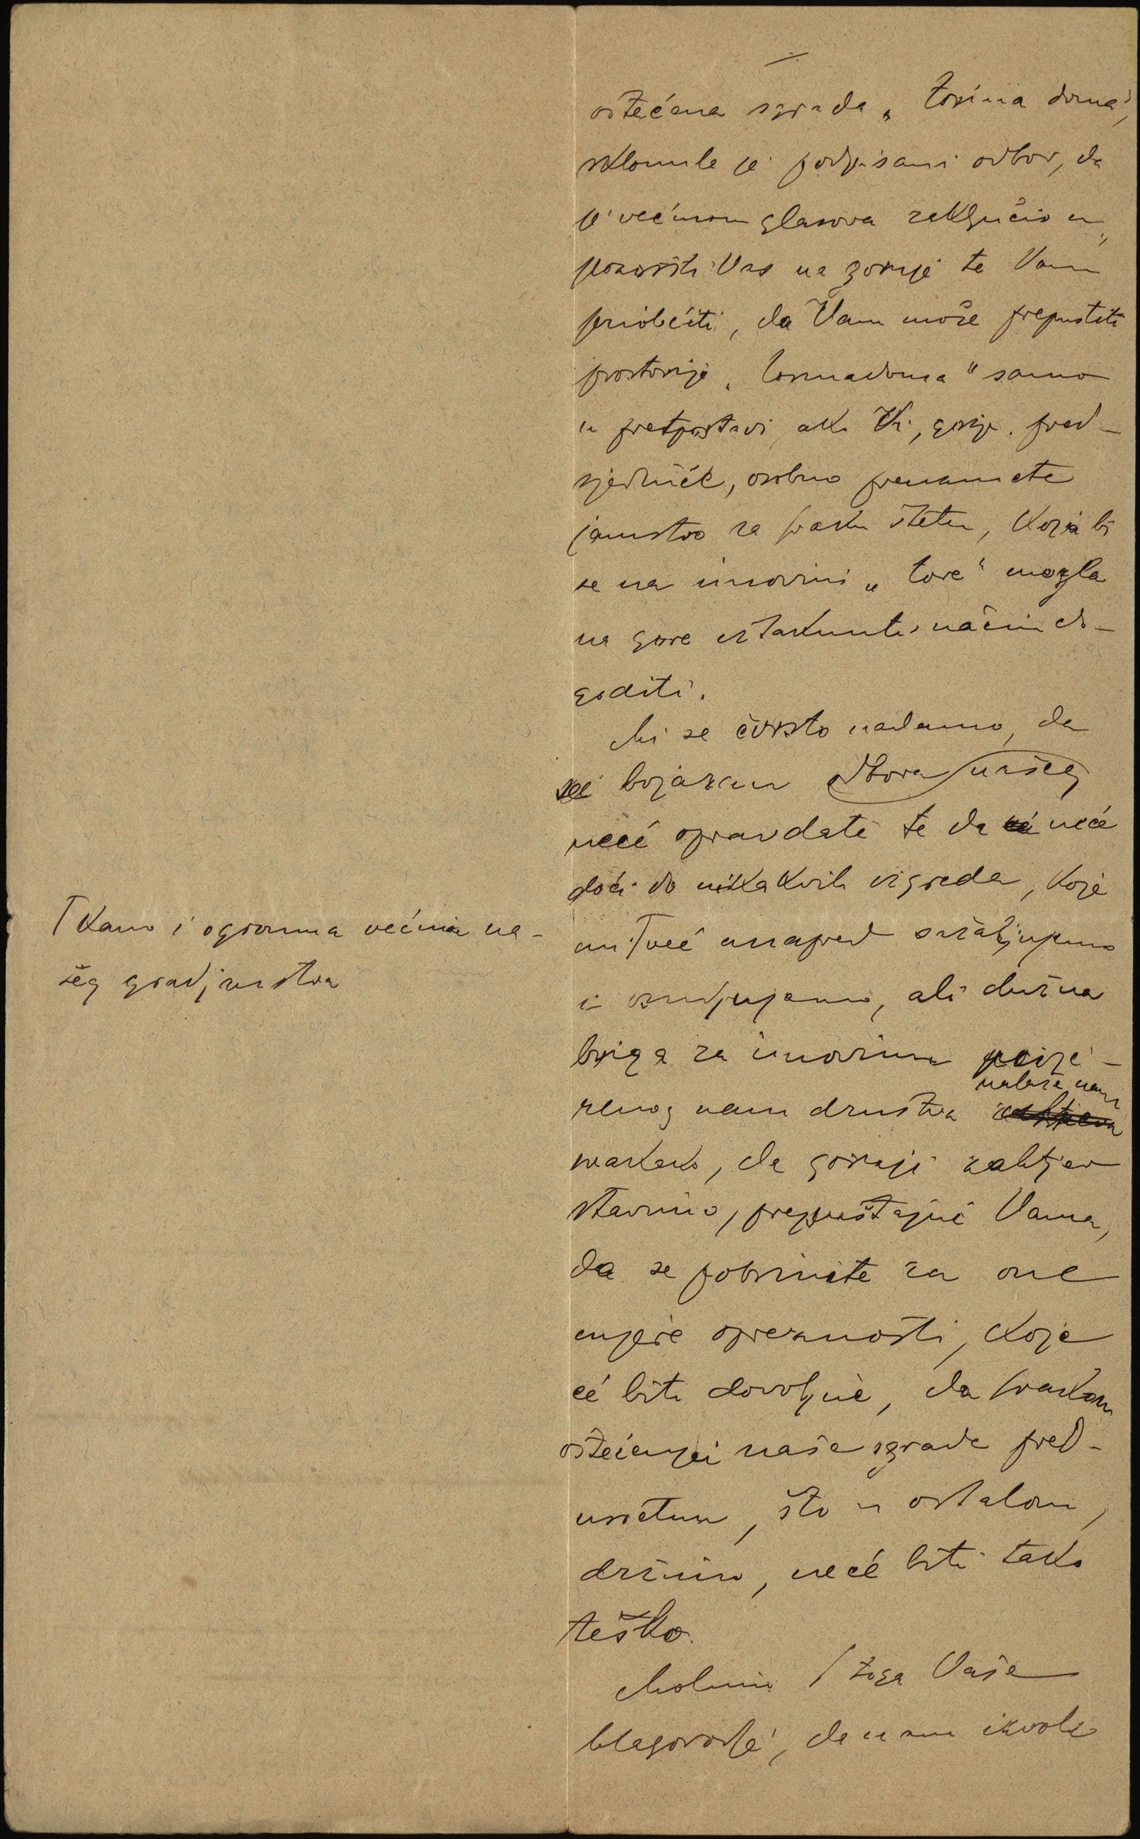 oštećena sgrada „Torina doma“,
sklonule je podpisani odbor, da
je većinom glasova zaključio u
pozvati Vas na gornje te Vam
priobćiti, da Vam može prepustiti
prostorije „Torinadoma“ samo
u pretpostavi, ako Vi, gosp. pred-
sjedniče, osobno preuzmete
jamstvo za svaku štetu, koja bi
se na imovini „Tore“ mogla
na gore istaknuti način do-
goditi.
Mi se čvrsto nadamo, da
se bojazan odbora našeg
neće opravdati te da neće
doći do nikakvih izgreda, koje
mi već unapred sažaljujemo
Kano i ogromna većina na-
šeg gradjanstva
i osudjujemo, ali dužna
briga za imovinu povje-
renog nam društva nalaže nam
svakako, da gornji zahtjev
stavimo, prepuštajuć Vama,
da se pobrinete za one
mjere opreznosti, koje
će biti dovoljne, da svakom
oštećenju naše zgrade pred-
usretnu, što u ostalom,
držimo, neće biti tako
teško.
Molimo s toga Vaše
blagorodje, da nam izvole